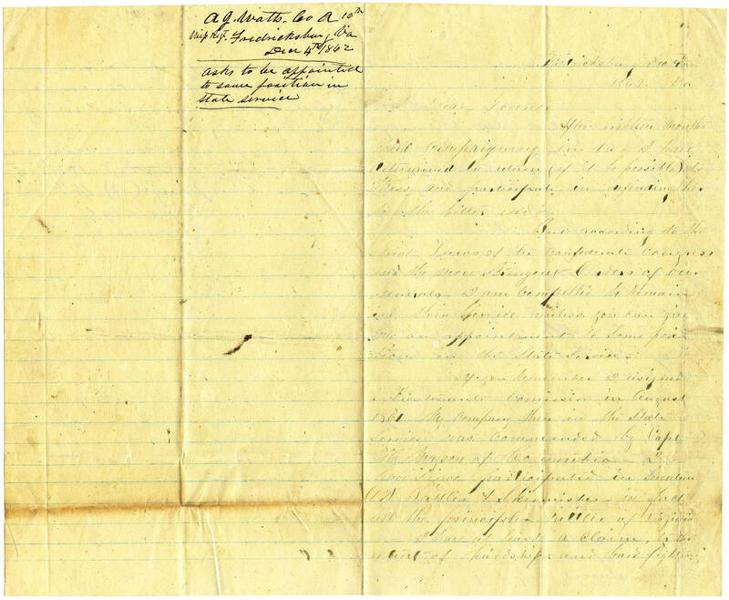 A. G. Watts. Co A 10th
Miss Regt. Fredricksburg Va
Decr 4th 1862
asks to be appointed
to some position in
state service
Fredricksburg Dec 4th
1862 Va
Dear Governor
After eighteen months
in Va I have
determined to return (if it be possible) to
Miss, and participate in defending her
to the bitter end.
But according to the
Laws of the Confederate Congress
and the more stringent Orders of our
Generals I am compelled to remain
in this service unless you can give
me an appointment to some posi
tion in the State Service.
If you remember I resigned
a Lieutenants Comission in August
1861 My Company then in the State
Service was commanded by Capt
of Co I
have since participated in
(12) Battles & Skirmishes in fact
all the principle battles of Virginia
I have at least a claim, in the
of hardships and hard fighting